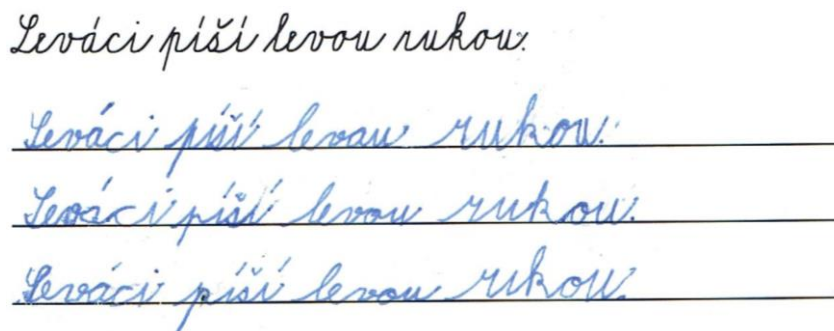 Leváci píší levou rukou.
Leváci píší levau rukou.
Leváci píší levou rukou.
Leváci píší levou rukou.